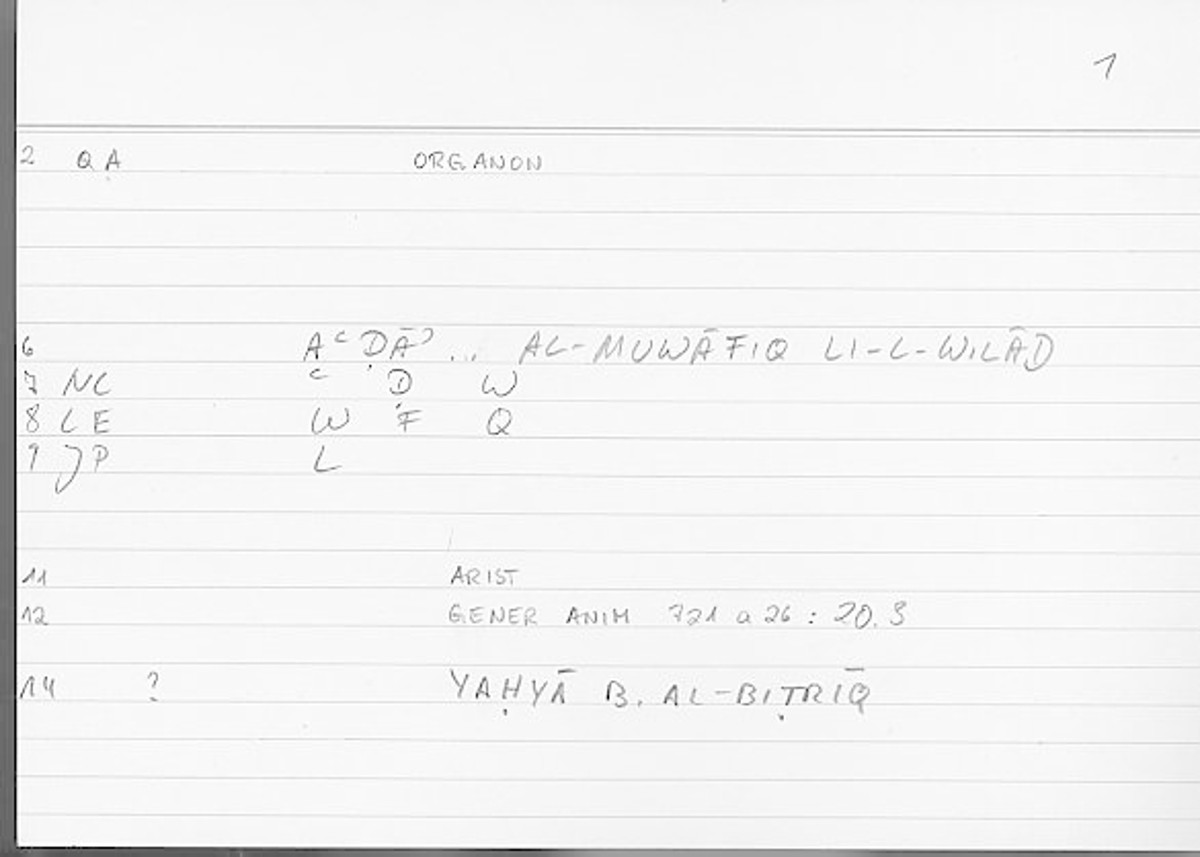 1
2 QẠ ORGANON
6 AʿḌĀʾ ... AL-MUWĀFIQ LI-L-WILĀD
7 NC ʿ Ḍ W
8 LE W F Q
9 JP L
11 ARIST
12 GENER ANIM 721 a 26 : 20.3
14 ? YAḤYĀ B. AL-BIṬRĪQ